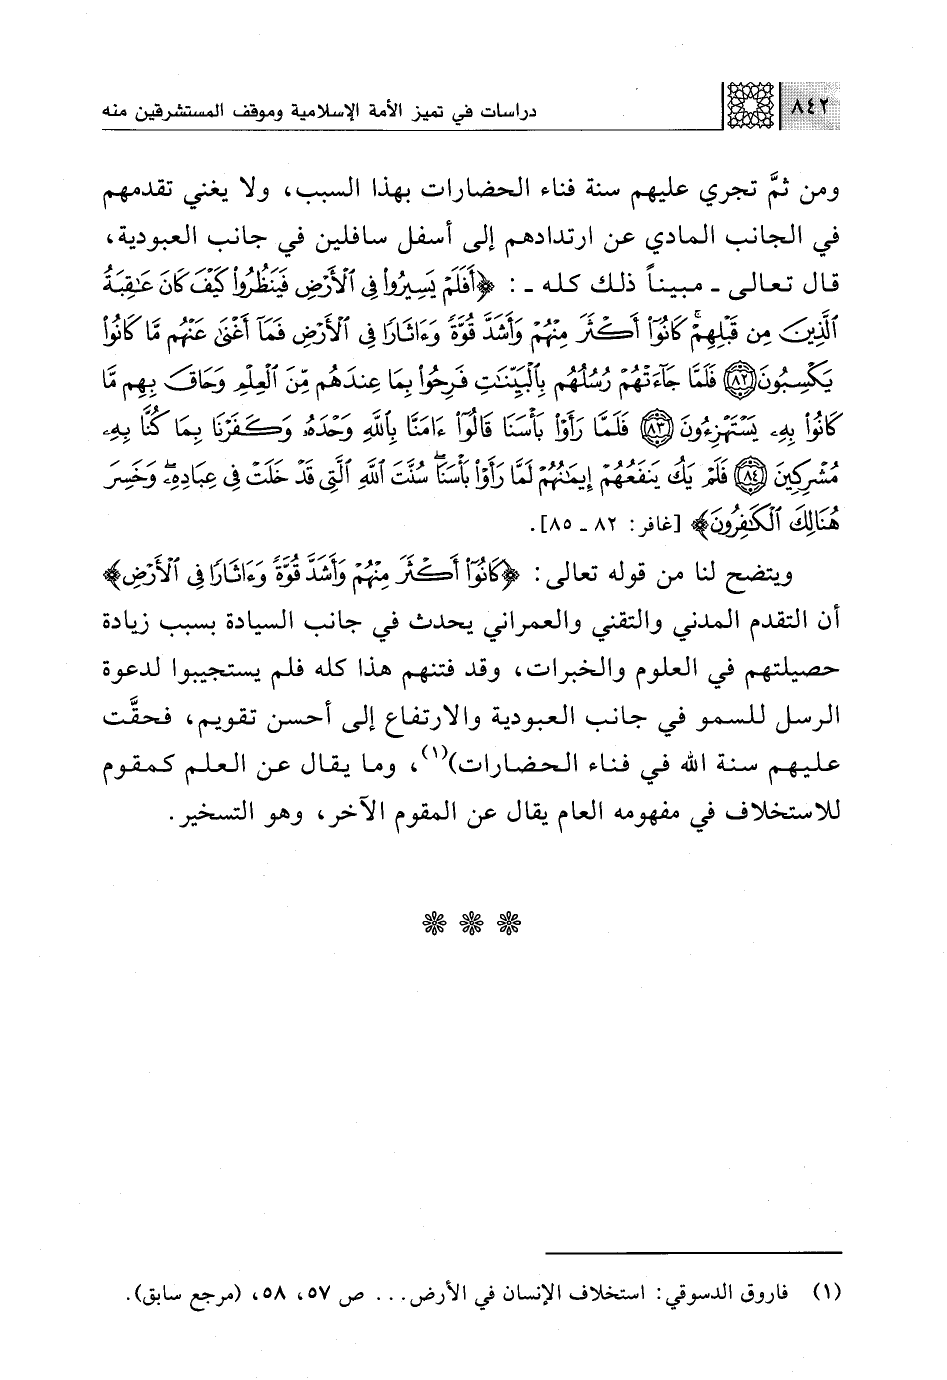 ٨٤٢ دراسات في تميز الأمة الإسلامية وموقف المستشرقين منه
ومن ثمَّ تجري عليهم سنة فناء الحضارات بهذا السبب، ولا يغني تقدمهم
في الجانب المادي عن ارتدادهم إلى أسفل سافلين في جانب العبودية،
قال تعالى ـ مبيناً ذلك كله ـ: ﴿أَفَلَمْ يَسِيرُوا۟ فِى ٱلْأَرْضِ فَيَنظُرُوا۟ كَيْفَ كَانَ عَٰقِبَةُ
ٱلَّذِينَ مِن قَبْلِهِمْ ۚ كَانُوٓا۟ أَكْثَرَ مِنْهُمْ وَأَشَدَّ قُوَّةً وَءَاثَارًا فِى ٱلْأَرْضِ فَمَآ أَغْنَىٰ عَنْهُم مَّا كَانُوا۟
يَكْسِبُونَ ﴿٨٢﴾ فَلَمَّا جَآءَتْهُمْ رُسُلُهُم بِٱلْبَيِّنَٰتِ فَرِحُوا۟ بِمَا عِندَهُم مِّنَ ٱلْعِلْمِ وَحَاقَ بِهِم مَّا
كَانُوا۟ بِهِۦ يَسْتَهْزِءُونَ ﴿٨٣﴾ فَلَمَّا رَأَوْا۟ بَأْسَنَا قَالُوٓا۟ ءَامَنَّا بِٱللَّهِ وَحْدَهُۥ وَكَفَرْنَا بِمَا كُنَّا بِهِۦ
مُشْرِكِينَ ﴿٨٤﴾ فَلَمْ يَكُ يَنفَعُهُمْ إِيمَٰنُهُمْ لَمَّا رَأَوْا۟ بَأْسَنَا ۖ سُنَّتَ ٱللَّهِ ٱلَّتِى قَدْ خَلَتْ فِى عِبَادِهِۦ ۖ وَخَسِرَ
هُنَالِكَ ٱلْكَٰفِرُونَ﴾ [غافر: ٨٢ ـ ٨٥].
ويتضح لنا من قوله تعالى: ﴿كَانُوٓا۟ أَكْثَرَ مِنْهُمْ وَأَشَدَّ قُوَّةً وَءَاثَارًا فِى ٱلْأَرْضِ﴾
أن التقدم المدني والتقني والعمراني يحدث في جانب السيادة بسبب زيادة
حصيلتهم في العلوم والخبرات، وقد فتنهم هذا كله فلم يستجيبوا لدعوة
الرسل للسمو في جانب العبودية والارتفاع إلى أحسن تقويم، فحقَّت
عليهم سنة الله في فناء الحضارات)(١)، وما يقال عن العلم كمقوم
للاستخلاف في مفهومه العام يقال عن المقوم الآخر، وهو التسخير.
(١) فاروق الدسوقي: استخلاف الإنسان في الأرض... ص ٥٧، ٥٨، (مرجع سابق).